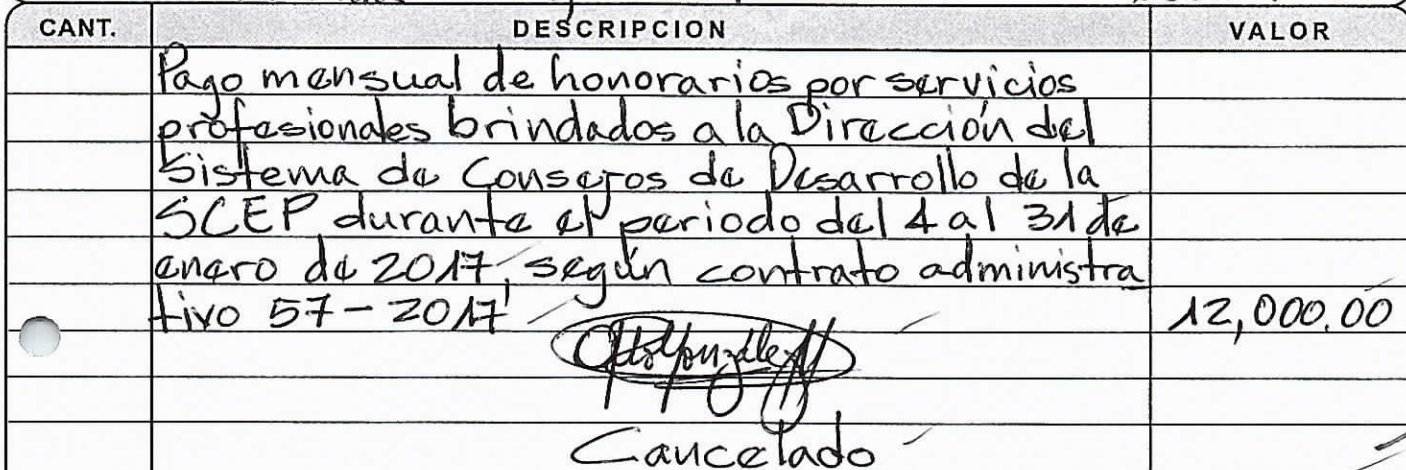 CANT. DESCRIPCION VALOR
Pago mensual de honorarios por servicios
profesionales brindados a la Dirección del
Sistema de Consejos de Desarrollo de la
SCEP durante el periodo del 4 al 31 de
enero de 2017, según contrato administra
tivo 57-2017 12,000.00
Cancelado